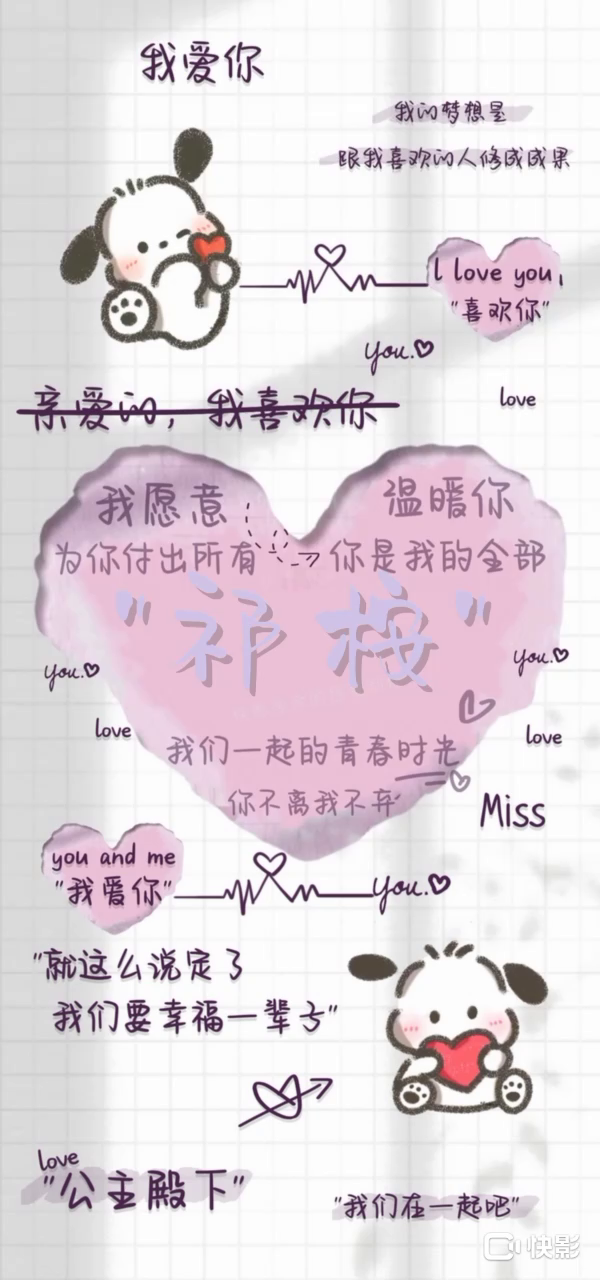 我爱你
我的梦想是
跟我喜欢的人修成成果
I love you,
"喜欢你"
you.
love
亲爱的，我喜欢你
我愿意
温暖你
为你付出所有
你是我的全部
"祁桉"
you.
you.
love
love
我们一起的青春时光
你不离我不弃
Miss
you and me
"我爱你"
you.
"就这么说定了
我们要幸福一辈子"
love
"公主殿下"
"我们在一起吧"
快影